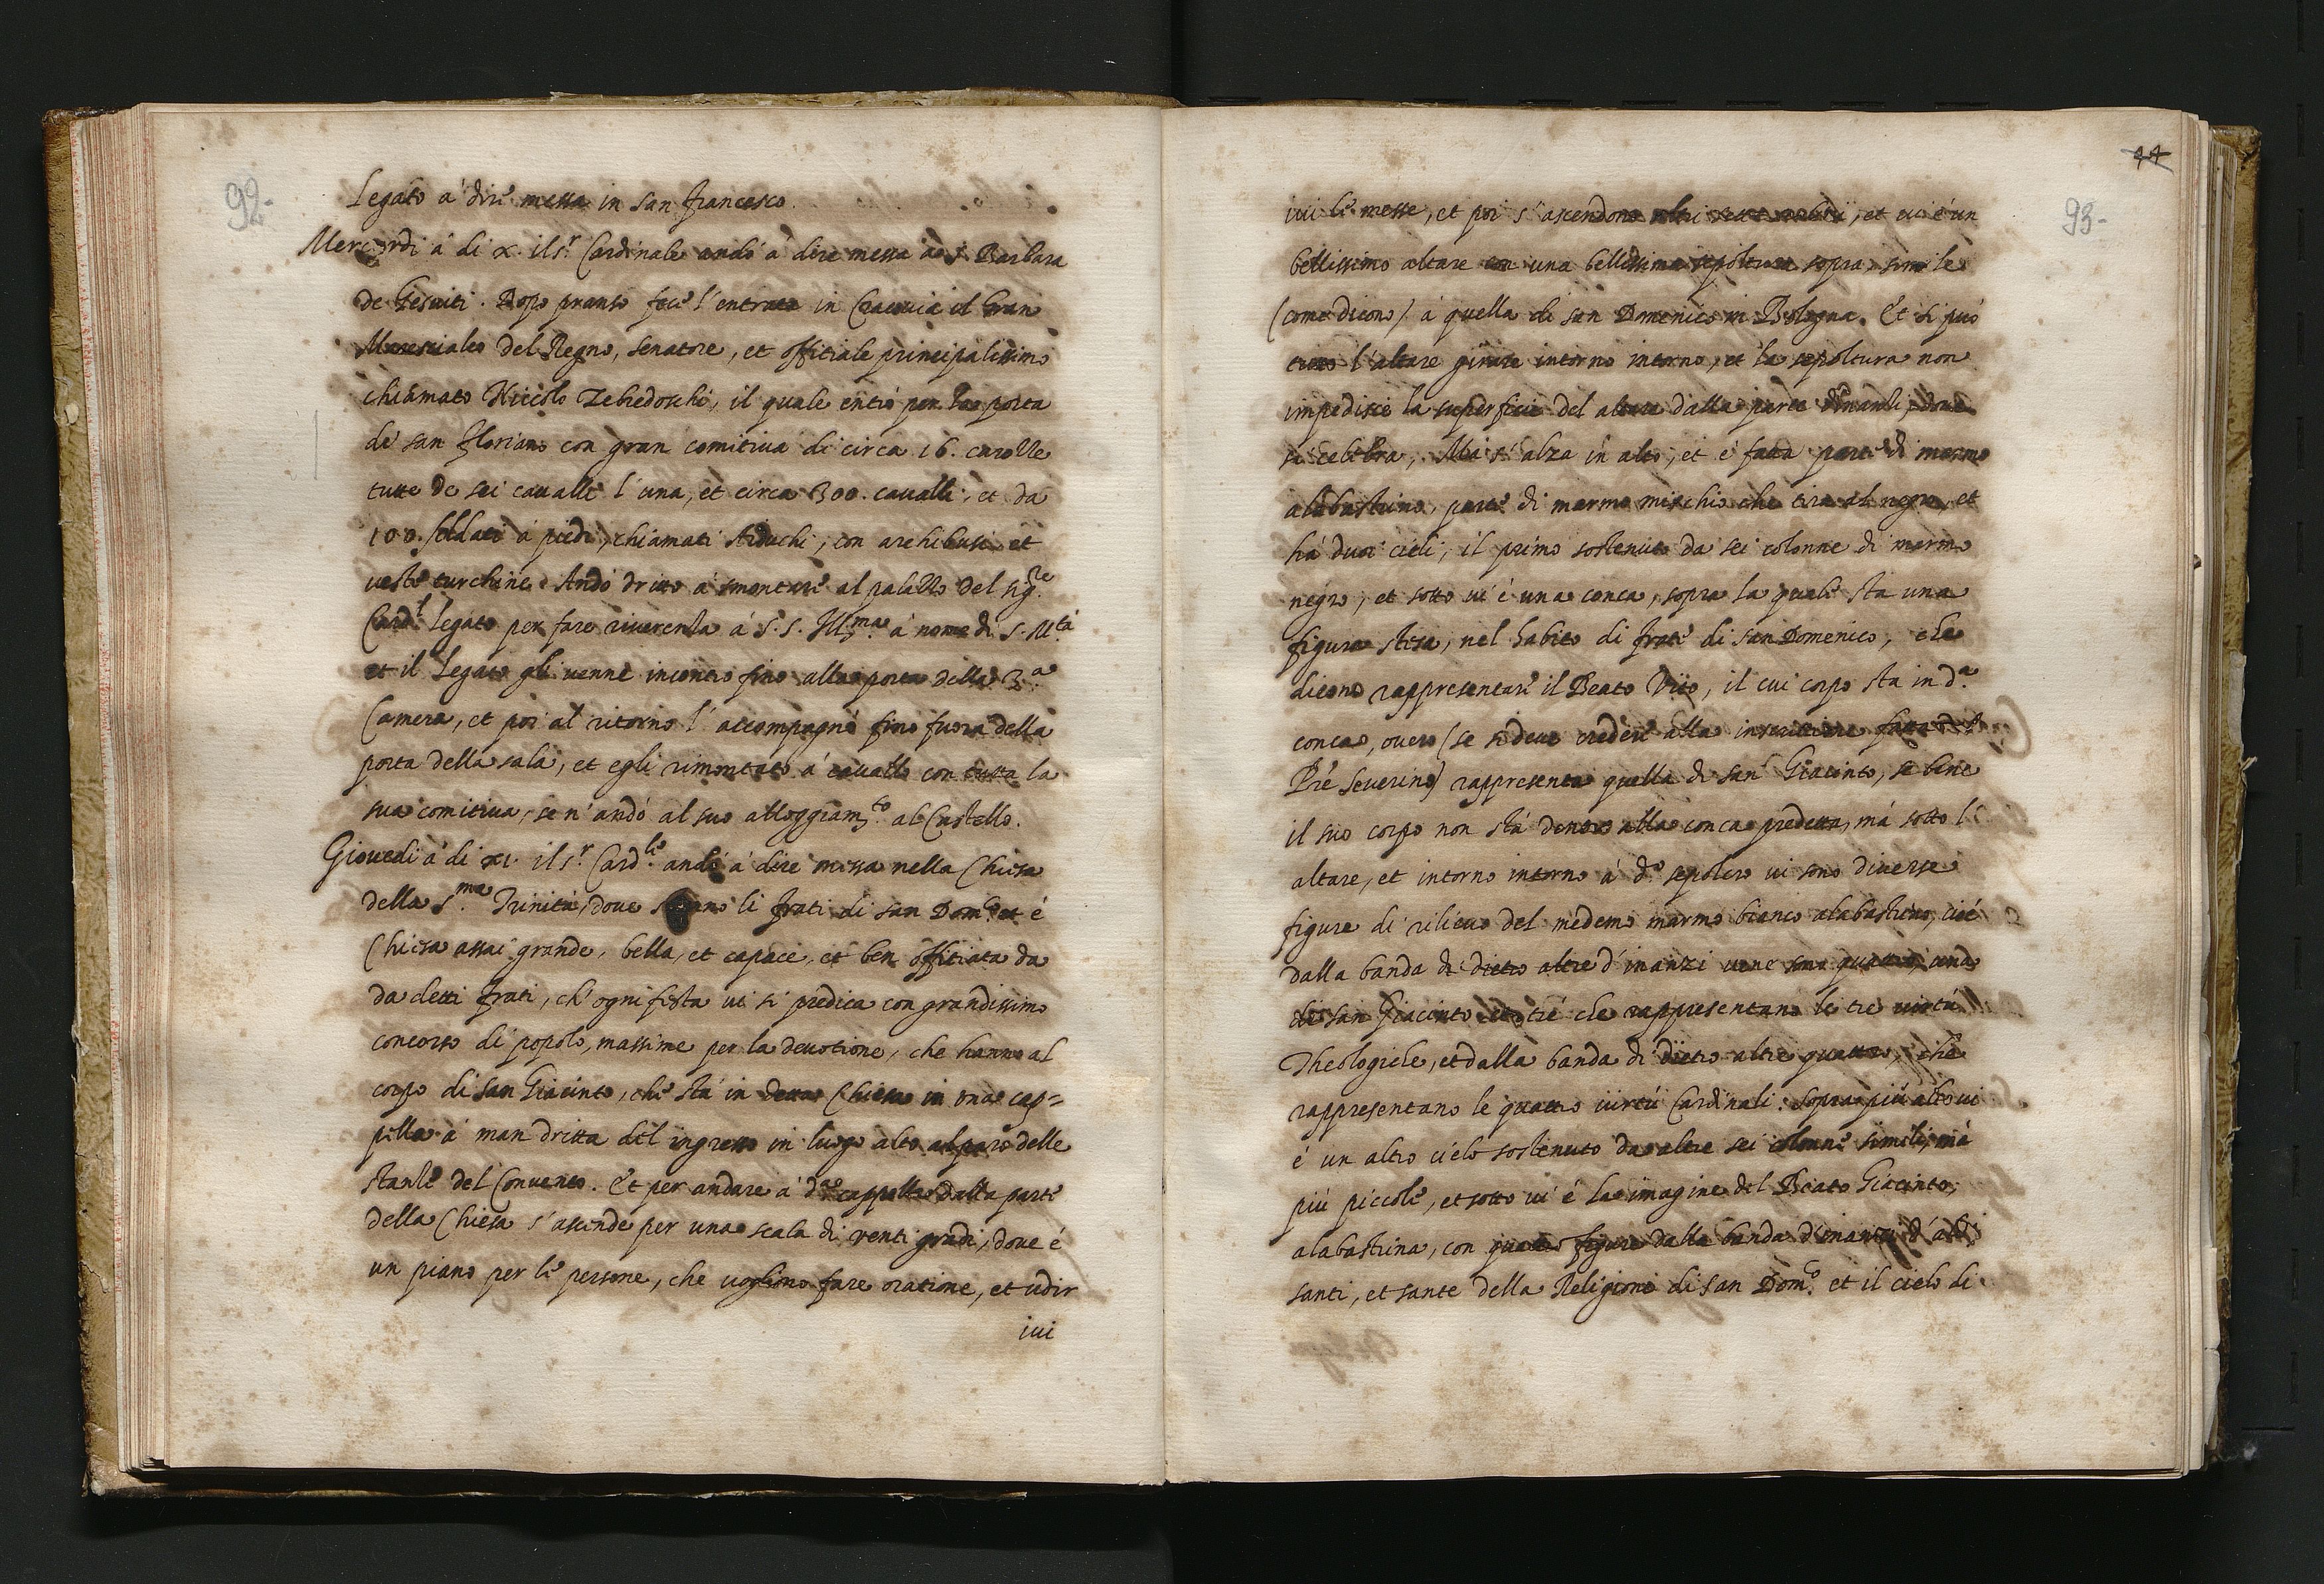 92-
Legato a' dire messa in san francesco.
Mercordi à di x. il sr. Cardinale andò à dire messa à S. Barbara
de Gesuiti. Dopo pranso fece l'entrata in Cracovia il Gran
Maresciale del Regno, senatore, et offitiale principalissimo
chiamato Niccolo Zebredoschi, il quale entrò per la porta
de san Floriano con gran comitiva di circa 16. carozze
tutte de sei cavalli l'una, et circa 300. cavalli, et da
100. soldati à piedi, chiamati Aiduchi, con archibusi et
veste turchine. Andò dritto à smontare al palazzo del sigre.
Cardl. Legato per fare riverenza à S. S. Illma. à nome di S. Mtà
et il Legato gli venne incontro fino alla porta della 3a
Camera, et poi al ritorno l'accompagnò fino fuora della
porta della sala, et egli rimontato à cavallo con tutta la
sua comitiva, se n'andò al suo alloggiamto. al Castello.
Giovedi à di xi. il sr. Cardle. andò à dire messa nella Chiesa
della Sma. Trinità, dove stanno li frati di san Domco. et è
Chiesa assai grande, bella, et capace, et ben offitiata da
da detti frati, ch'ogni festa vi si predica con grandissimo
concorso di popolo, massime per la devotione, che hanno al
corpo di san Giacinto, che sta in detta Chiesa in una cap=
pella à man dritta del ingresso in luogo alto al paro delle
stanze del Convento. Et per andare à da. cappella dalla parte
della Chiesa s'ascende per una scala di venti gradi, dove è
un piano per le persone, che vogliono fare oratione, et udir
ivi
44
93-
ivi le messe, et poi s'ascendono altri et vi è un
bellissimo altare con una bellissima sepoltura sopra, simile
(come dicono) à quella di san Domenico in Bologna. Et si può
tutto l'altare girare intorno intorno, et la sepoltura non
impedisce la superficie del altare dalla parte dinanzi, dove
si celebra, Ma s'alza in alto, et è fatta parte di marmo
alabastrino, parte di marmo mischio che tira al negro, et
hà duoi cieli, il primo sostenuto da sei colonne di marmo
negro, et sotto vi è una conca, sopra la quale sta una
figura stesa, nel habito di frate di san Domenico, che
dicono rappresentare il Beato Vito, il cui corpo sta in da.
conca, overo (se si deve credere alla inscrittione fatta dal
Pre Severino) rappresenta quella di san Giacinto, se bene
il suo corpo non stà dentro alla conca predetta, mà sotto l'
altare, et intorno intorno à do. sepolcro vi sono diverse
figure di rilievo del medemo marmo bianco alabastrino, cioè
dalla banda di dietro altre d'inanzi vene sono quattro, una
di san Giacinto et tre che rappresentano le tre virtù
Theologiche, et dalla banda di dietro altre quattro, che
rappresentano le quattro virtù Cardinali. Sopra più alto vi
è un altro cielo sostenuto da altre sei colonne simili, mà
più piccole, et sotto vi è la imagine del Beato Giacinto,
alabastrina, con quattro figure dalla banda d'inanzi d'altri
santi, et sante della Religione di san Domco. et il cielo di